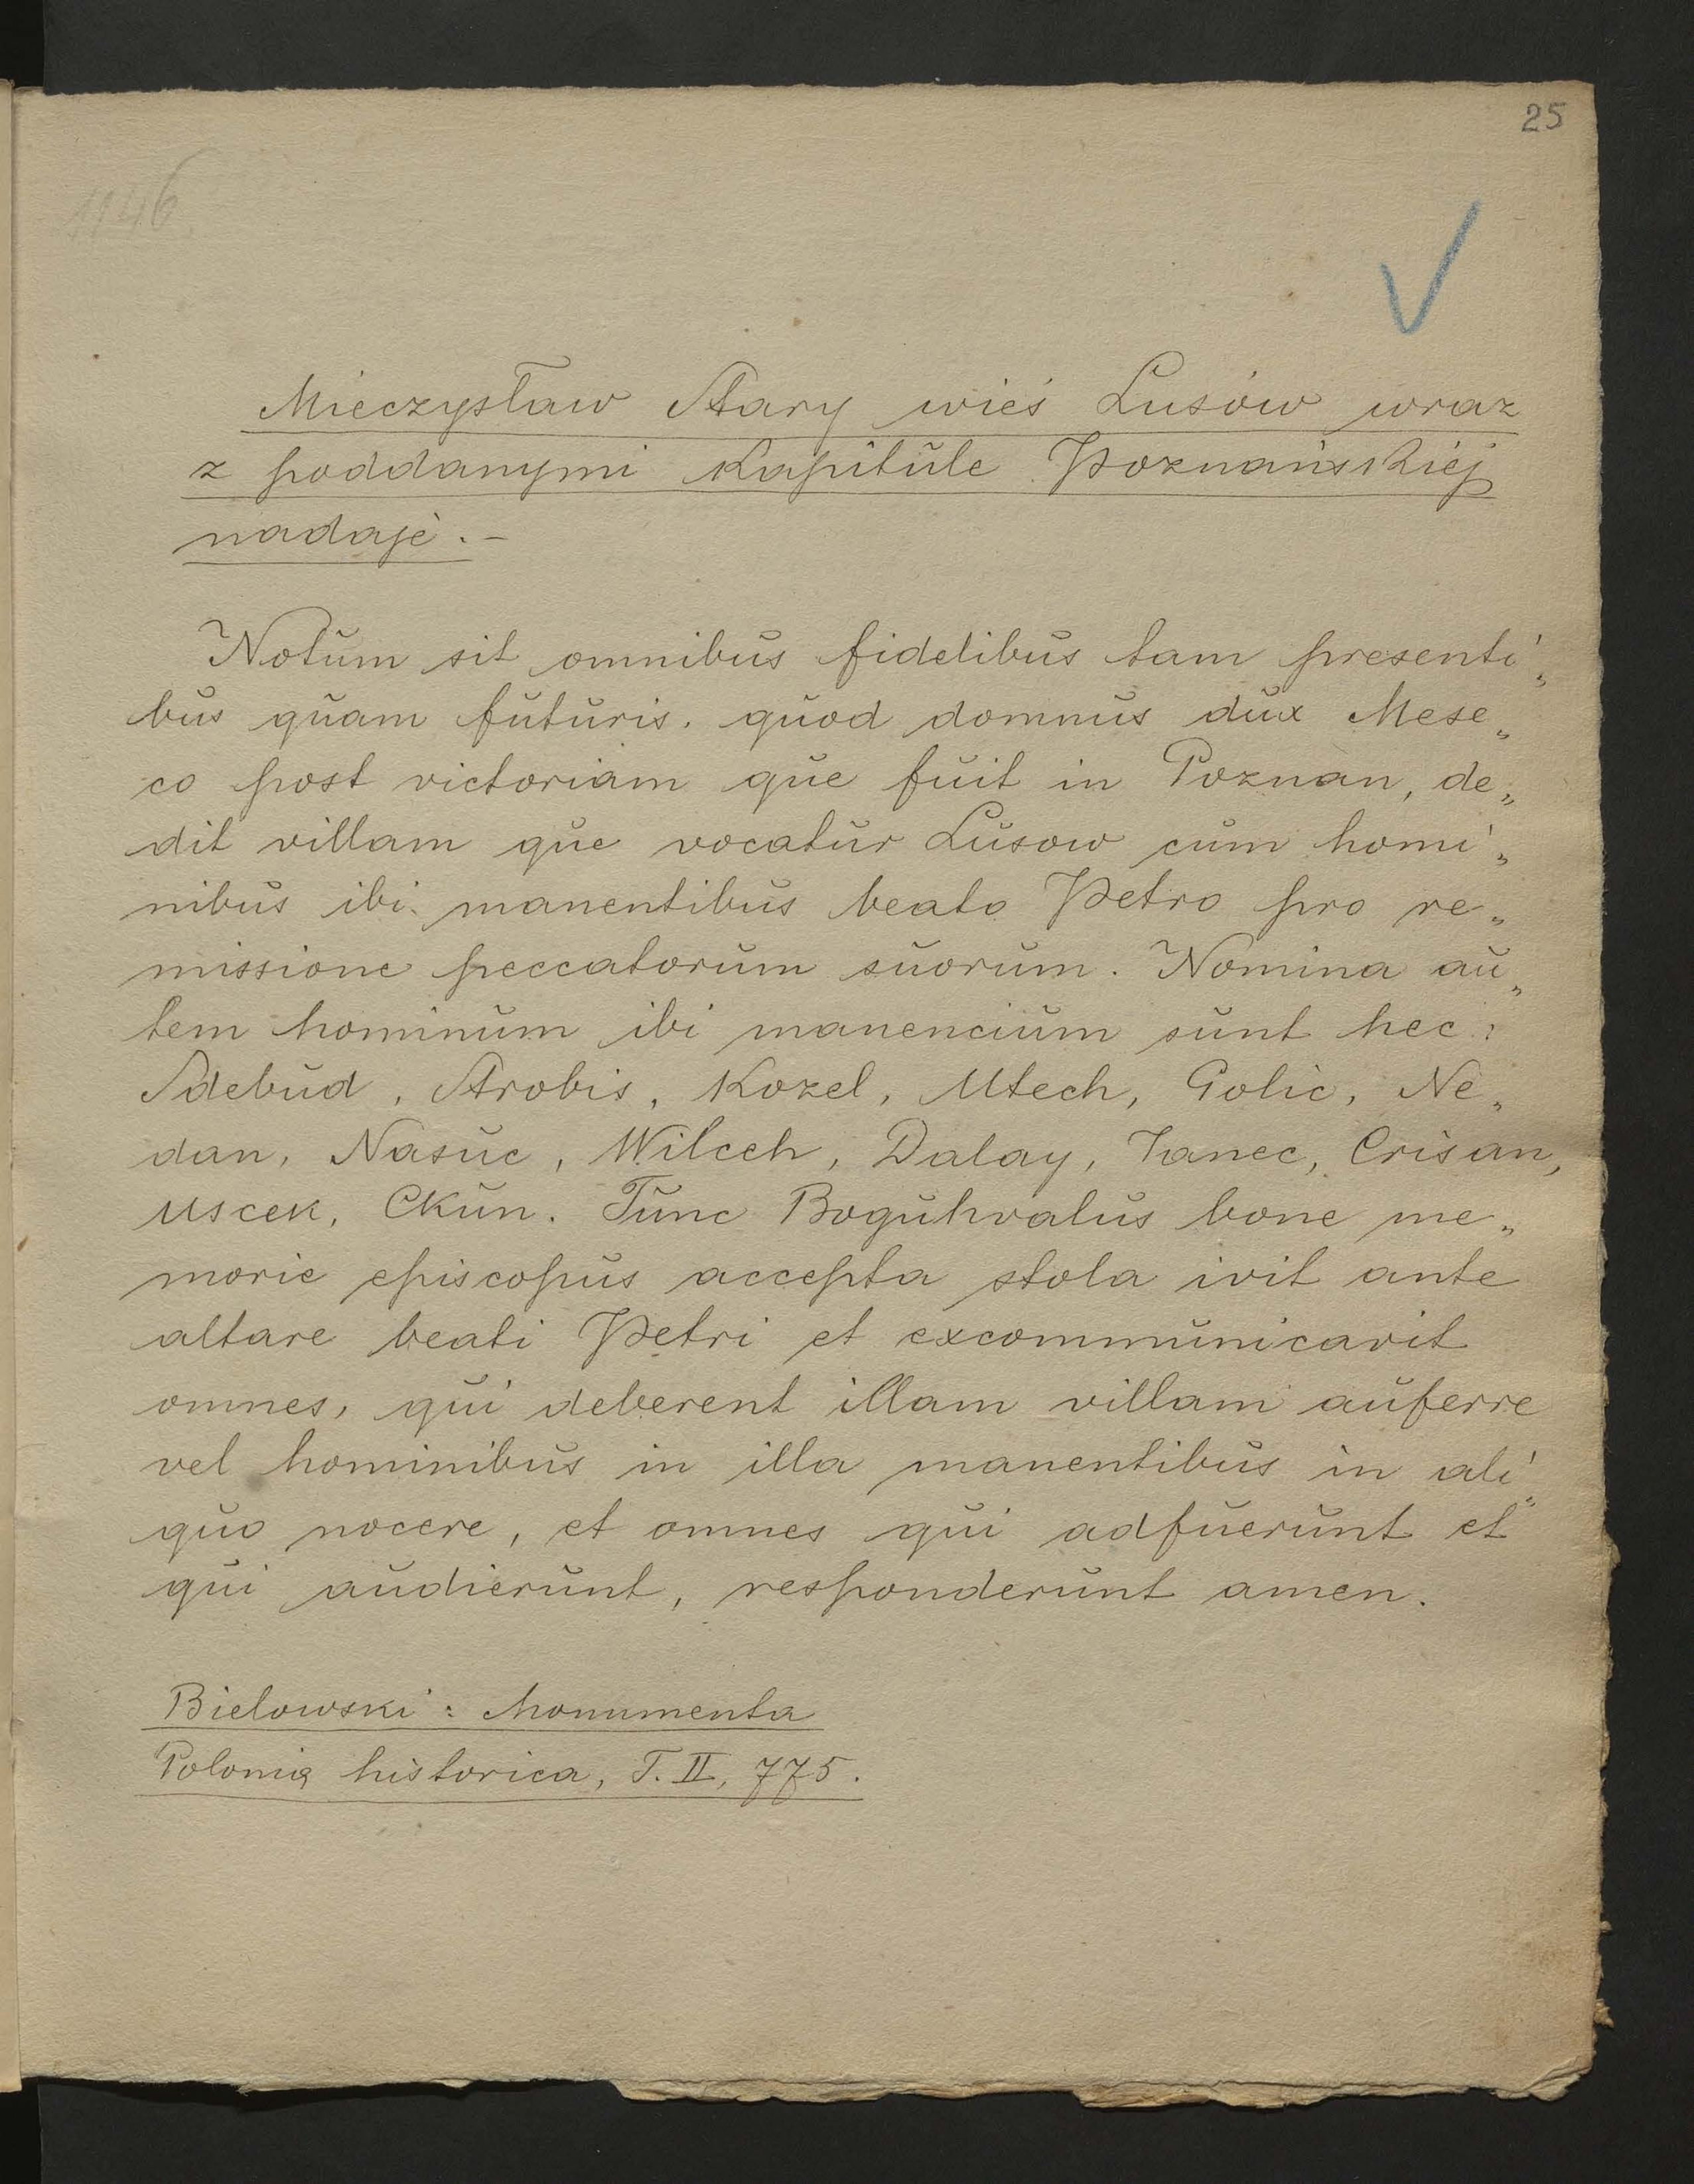 25
1146
Mieczysław Stary wieś Lusów wraz
z poddanymi Kapitule Poznańskiej
nadaje.-
Notum sit omnibus fidelibus tam presenti„
bus quam futuris. quod domnus dux Mese„
co post victoriam que fuit in Poznan, de„
dit villam que vocatur Lusow cum homi„
nibus ibi manentibus beato Petro pro re„
missione peccatorum suorum. Nomina au„
tem hominum ibi manencium sunt hec:
Sdebud, Strobis, Kozel, Utech, Golic, Ne„
dan, Nasuc, Wilceh, Dalay, Ianec, Crisan,
Uscek, Ckun. Tunc Boguhvalus bone me„
morie episcopus accepta stola ivit ante
altare beati Petri et excommunicavit
omnes, qui deberent illam villam auferre
vel hominibus in illa manentibus in ali„
quo nocere, et omnes qui adfuerunt et
qui audierunt, responderunt amen.
Bielowski: Monumenta
Polonią historica, T. II, 775.